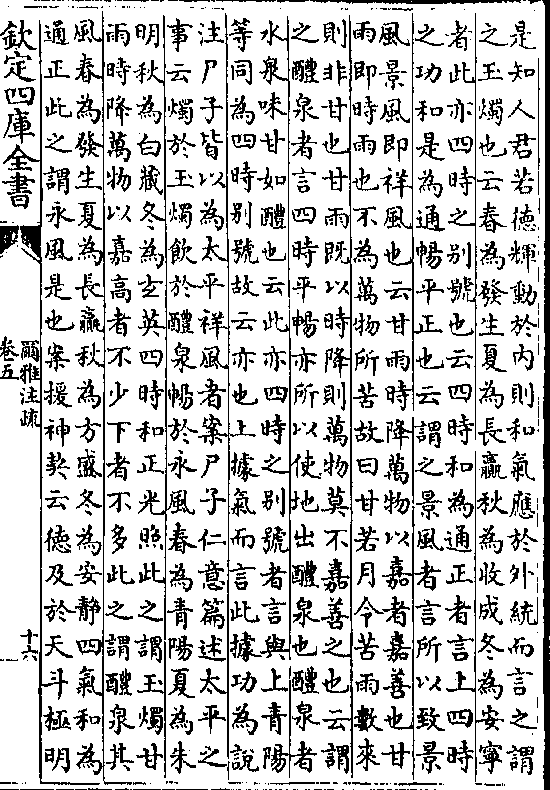 是知人君若德輝動於内則和氣應於外統而言之謂
之玉燭也云春為發生夏為長贏秋為收成冬為安寧
者此亦四時之别號也云四時和為通正者言上四時
之功和是為通暢平正也云謂之景風者言所以致景
風景風即祥風也云甘雨時降萬物以嘉者嘉善也甘
雨即時雨也不為萬物所苦故曰甘若月令苦雨數來
則非甘也甘雨既以時降則萬物莫不嘉善之也云謂
之醴泉者言四時平暢亦所以使地出醴泉也醴泉者
水泉味甘如醴也云此亦四時之别號者言與上青陽
等同為四時别號故云亦也上據氣而言此據功為說
注尸子皆以為太平祥風者案尸子仁意篇述太平之
事云燭於玉燭飲於醴泉暢於永風春為青陽夏為朱
明秋為白藏冬為玄英四時和正光照此之謂玉燭甘
雨時降萬物以嘉高者不少下者不多此之謂醴泉其
風春為發生夏為長贏秋為方盛冬為安静四氣和為
通正此之謂永風是也案援神契云德及於天斗極明
欽定四庫全書
爾雅注疏
卷五
十六